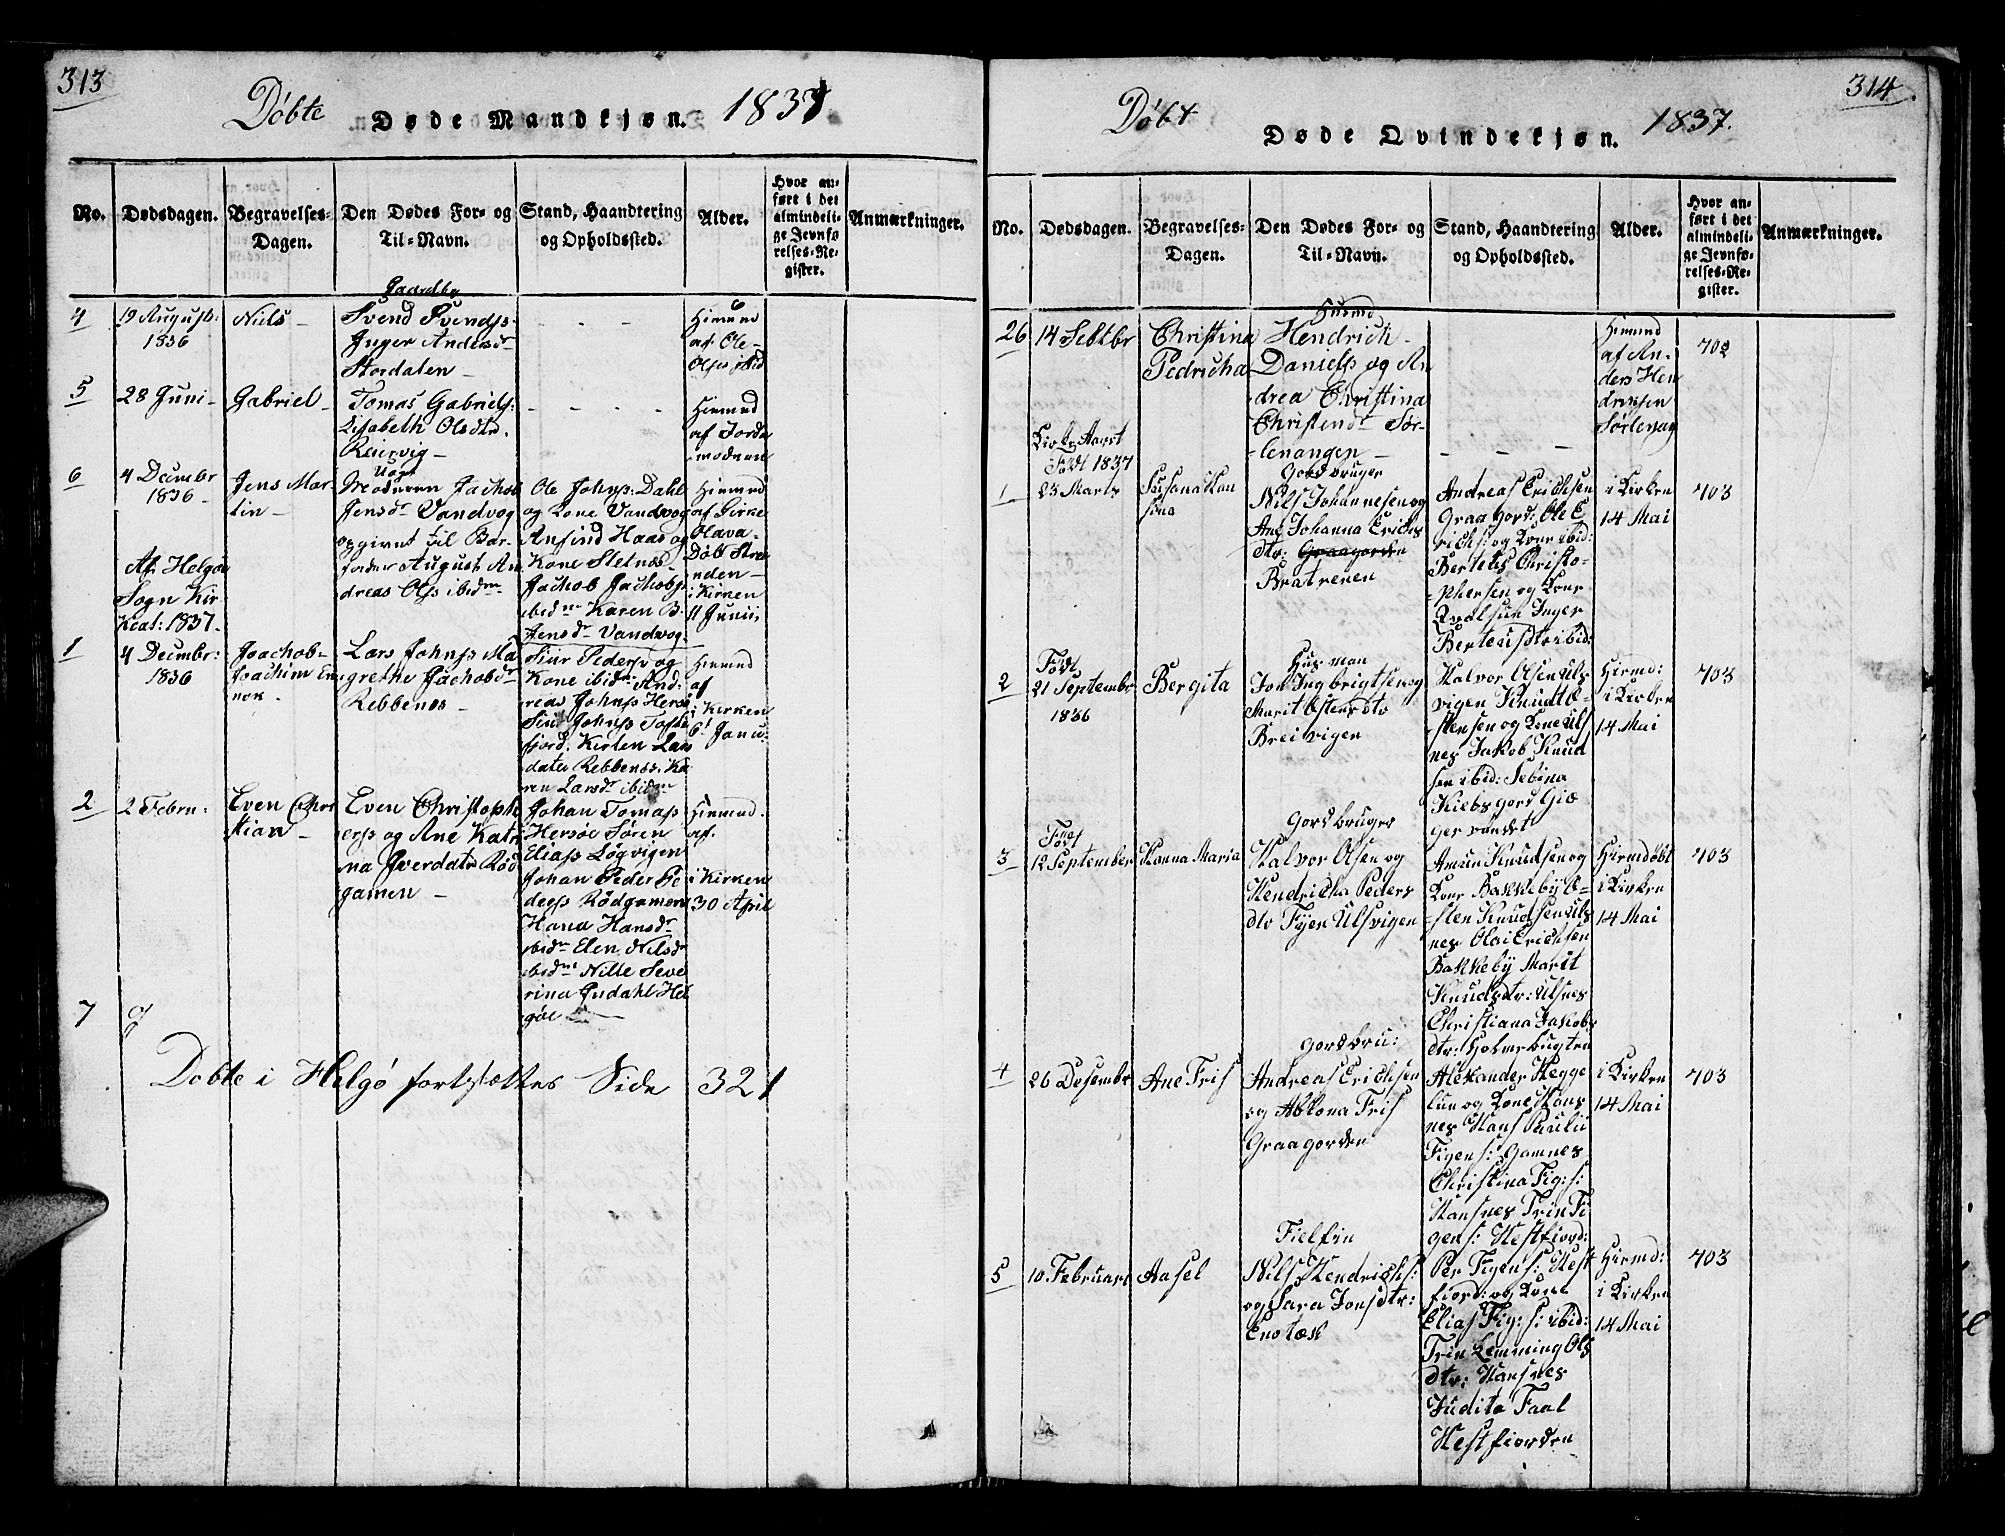 313
Döbte Døde Mandkjøn. 1837
No.
Dødsdagen.
Begravelses-
Dagen.
Den Dødes For- og
Til-Navn.
Stand, Haandtering
og Opholdssted.
Alder.
Hvor an-
ført i det
almindeli-
ge Jevnfø-
relses-Re-
gister.
Anmærkninger.
4
19 August:
1836
Niels -
Svend Svends.
Inger Andersdr
Stordalen -
Hiemmd
af Ole
Olsen ibid
5
28 Juni -
Gabriel -
Tomas Gabriels:
Lisabeth Olsdtr.
Reinvig -
Hiemmd
af Jorde
moderen
6
4 Decembr
1836 -
Jens Mar-
tin -
Ugvt
Moderen Jachob
Jensdr Vandvog
opgivet til Bar-
fader August An
dreas Ols ibidm
Ole Johns. Dahl
og Kone Vandvog
Anfind Haas og
Kone Sletnes
Jachob Jachobs
ibidm Karen B.
Jensdr Vandvog.
Hiemmd
af Kirke
Olava
Döb Stra
nden -
i Kirken
11 Junii
Af Helgö
Sogn Kir-
keat: 1837.
1
4 Decembr:
1836
Joachob-
Joachim En
nok -
Lars Johns Ma
grethe Jachobdr
Rebbenes -
Siur Peders og
Kone ibidm And:
reas Johns Hersö
Siur Johns Tofte
fjord. Kirsten Lars
dater Rebbenes. Ka
ren Larsdr ibidm
Hiemmd
af
i Kirken
6' Janu.
2
2 Febru:
Even Chri
stian -
Even Christoph
ers og Ane Katri
na Iverdatr Röd
gamen -
Johan Tomas
Hersöe Sören
Elias Lögvigen
Johan Peder Pe
ders Rödgamen
Hana Hansdr
ibidm Elen Nilsdr
ibidm Nille Seve
rina Indahl Hel
göe
Hiemmd.
af.
i Kirken
30 April
7
Döbte i Helgö fortsættes Side 321
314.
Döbt Døde Qvindekjøn. 1837.
No.
Dødsdagen.
Begravelses-
Dagen.
Den Dødes For- og
Til-Navn.
Stand, Haandtering
og Opholdssted.
Alder.
Hvor an-
ført i det
almindeli-
ge Jevnfø-
relses-Re-
gister.
Anmærkninger.
26
14 Sebtbr
Christina
Pedricha
Husmd
Hendrich -
Daniels og An
drea Christina
Christendr Sör-
lenangen -
Hiemmd
af An-
ders Hen
dreksen
Sörlenang
702
Födt 1837
1
23 Marts
Susana Kon
sina
Gord bruger
Nils Johannesen og
Ane Johanna Erichs
dtr: Graagorden
Bratrenen
Andreas Erichsen
Graagord: Ole E
richs: og Kone ibid:
Bertéus Christo-
phersen og Kone
Qvalsun Inger
Bertéusdtr ibid:
i Kirken
14 Mai
703
2
Födt
21 Septembr
1836
Bergita
Husman
Jon Ingbrigtsen og
Marit Östensdtr
Breivigen
Halvor Olsen Uls
vigen Knudt Ö-
stensen og Kone Uls
nes Jakob Knud
sen ibid: Sebina
Kiebsgord Giæ
gervandet
Hiemd:
i Kirken
14 Mai
703
3
Födt
12 September
Hanna Maria
Gordbruger
Halvor Olsen og
Hendricha Peders
dtr Fyen Ulsvigen
Amun Knudsen og
Kone Bakkeby Ö-
sten Knudsen Uls
nes Olai Erichsen
Bakkeby Marit
Knudsdtr: Ulsnes
Christiana Jakobs
dtr: Holmebugten
Hiemdöbt
i Kirken
14 Mai
703
4
26 Desembr
Ane Fris
Gordbru:
Andreas Erichsen
og Abelona Fris
Graagorden
Alexander Hegge
lun og Kone Hans
nes Hans Pauli
Figens: Gamnes
Christina Fig: s:
Hansnes Trin Fi
gens: Hestfiord:
i Kirken
14 Mai
703
5
10 Februari
Aasel
Fielfin
Nils Hendrichs:
og Sara Jonsdtr:
Per Figens: Hest
fiord: og Kone
Elias Fig: s: ibid:
Trin Lemming Ols
dtr: Hansnes
Judita Faal
Hestfiorden
Hiemd:
i Kirken
14 Mai
703